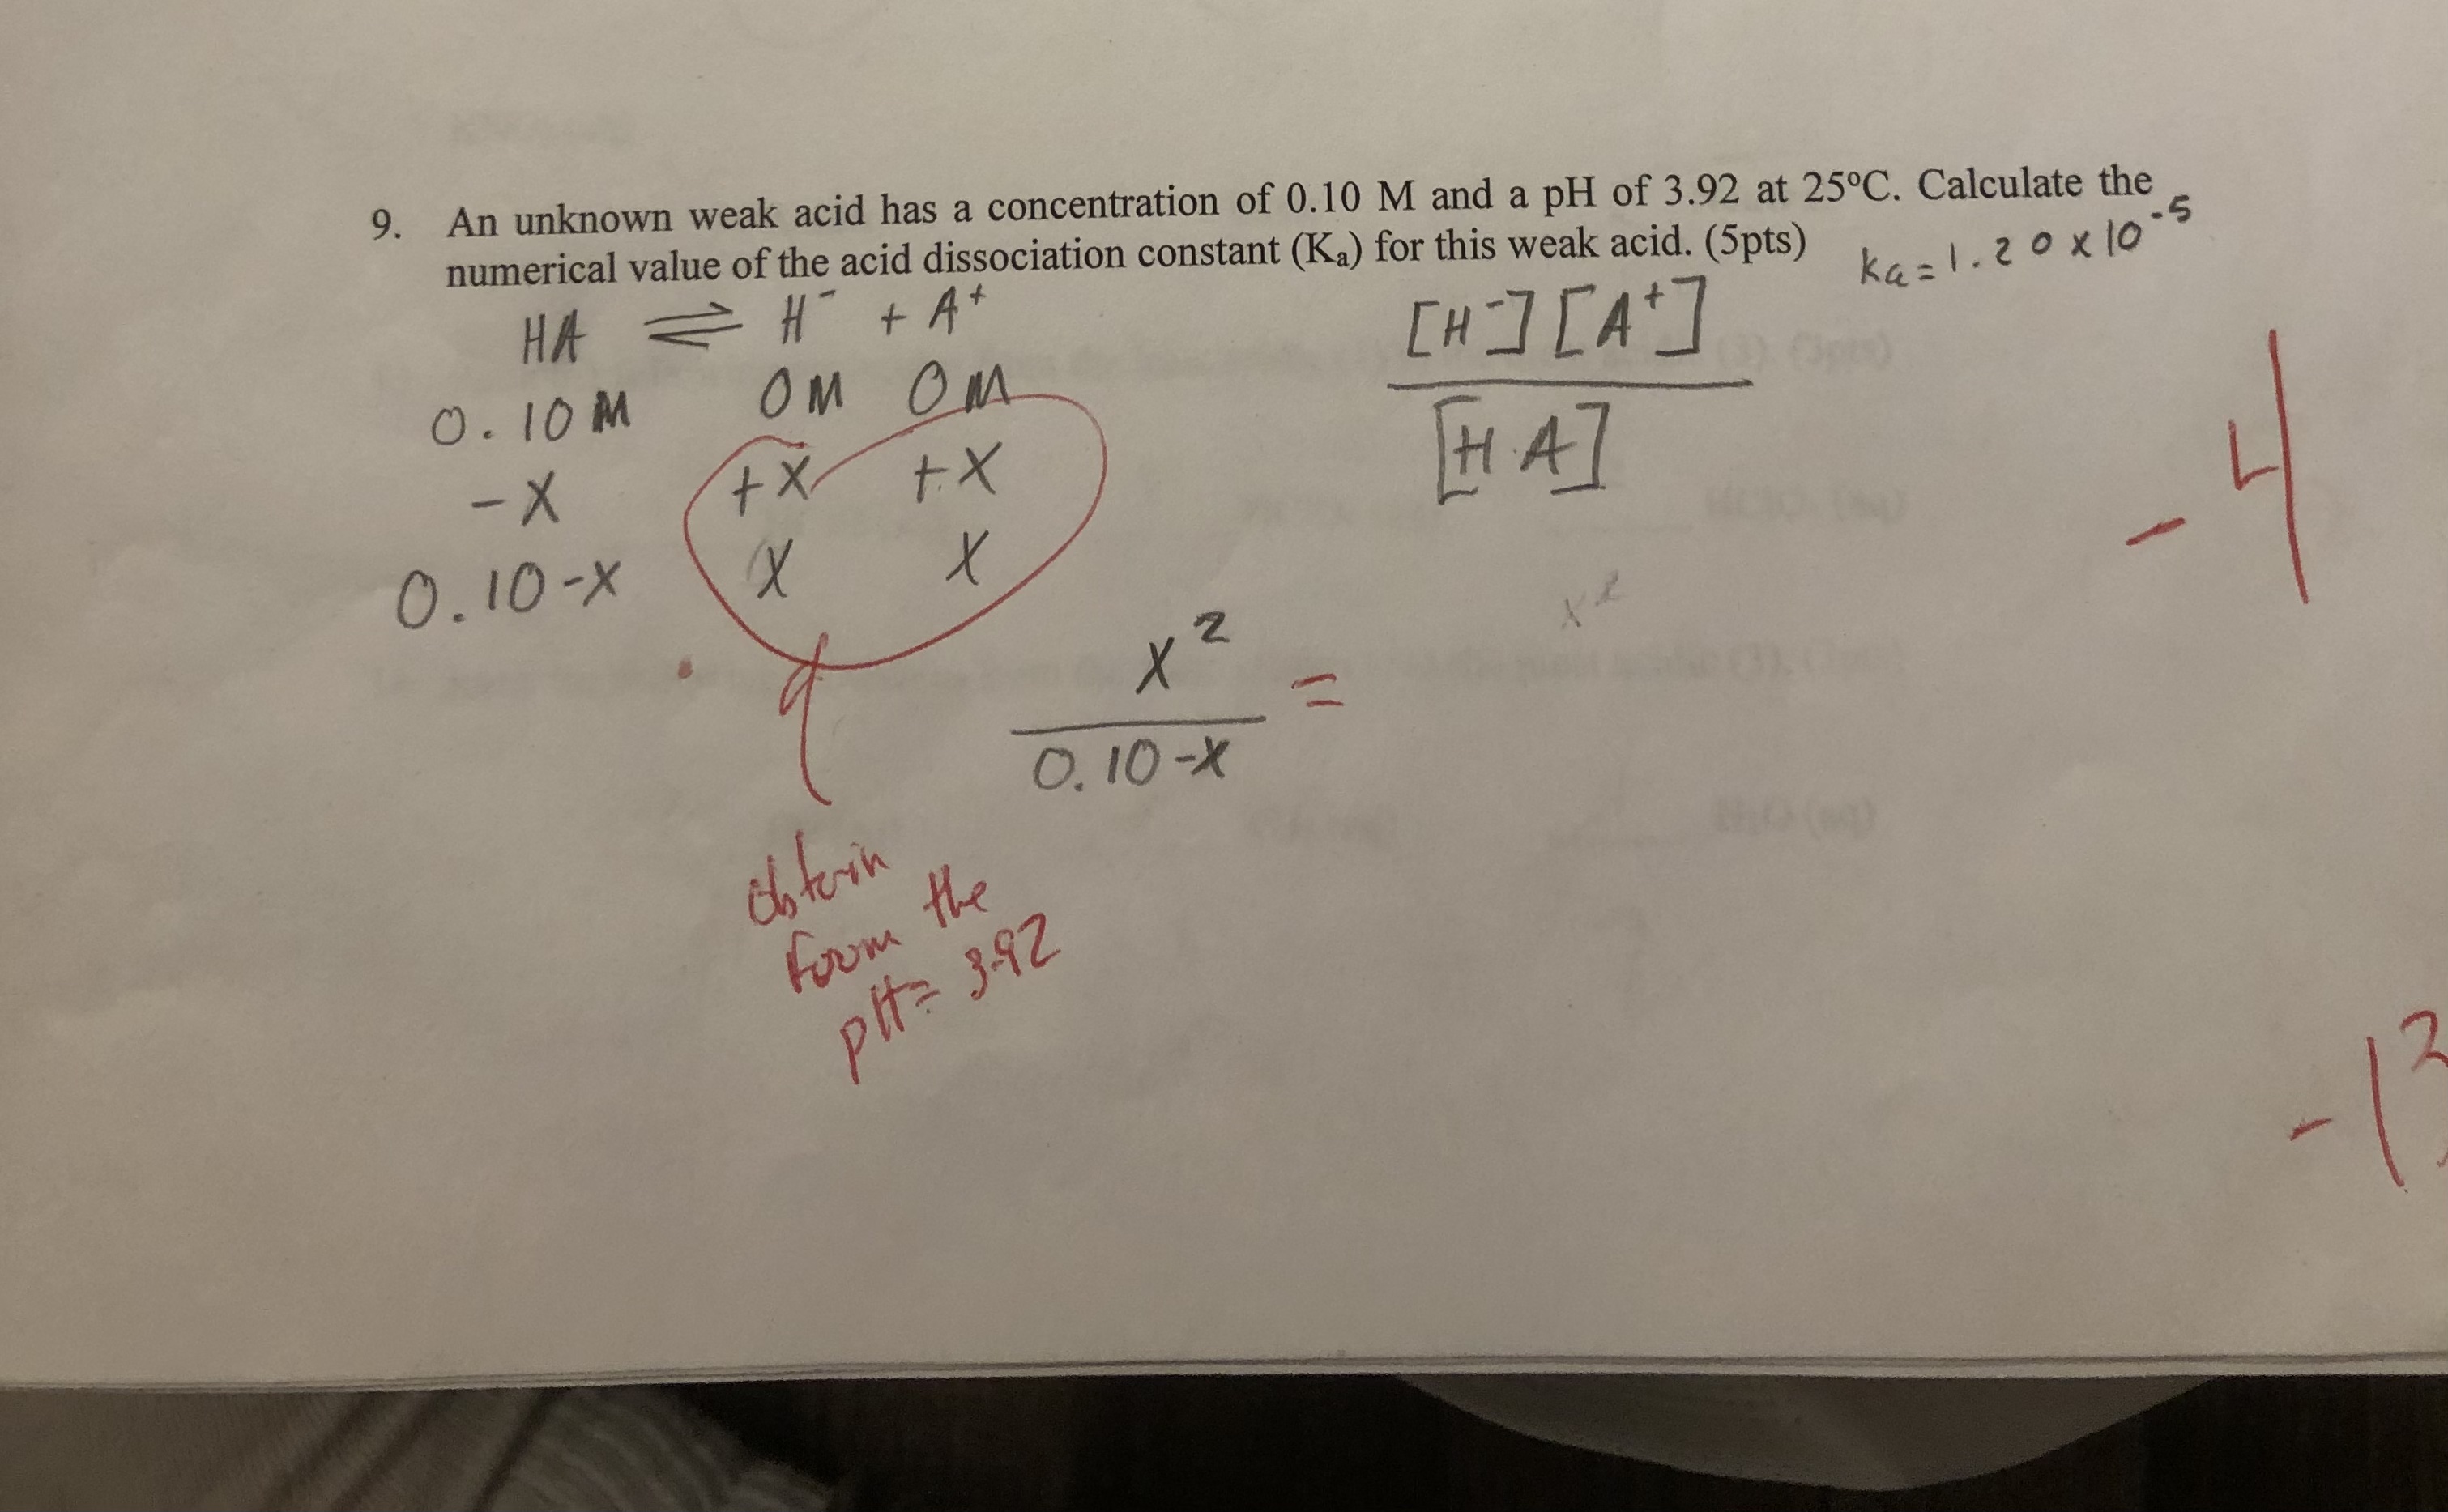 9. An unknown weak acid has a concentration of 0.10 M and a pH of 3.92 at 25ºC. Calculate the
numerical value of the acid dissociation constant (Kₐ) for this weak acid. (5pts)
ka = 1.20 x 10⁻⁵
HA ⇌ H⁻ + A⁺
0.10 M 0 M 0 M
-X +X +X
0.10-X X X
[H⁻][A⁺]
[HA]
- 4
X²
X² =
0.10-X
obtain
from the
pH = 3.92
- 13